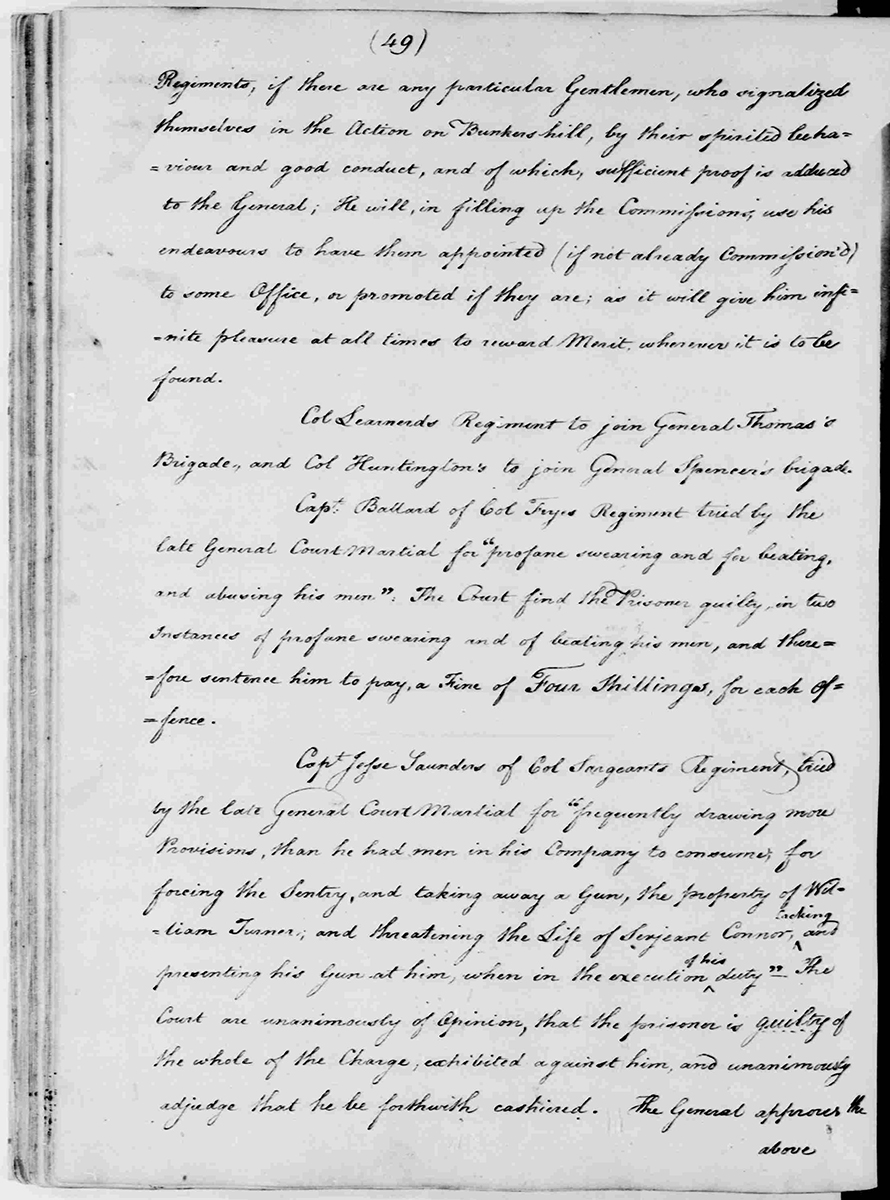 (49)
Regiments, if there are any particular Gentlemen, who signalized
themselves in the Action on Bunkers hill, by their spirited beha=
=viour and good conduct, and of which, sufficient proof is adduced
to the General; He will, in filling up the Commissions, use his
endeavours to have them appointed (if not already Commission'd)
to some Office, or promoted if they are; as it will give him infi=
=nite pleasure at all times to reward Merit, wherever it is to be
found.
Col Learnerds Regiment to join General Thomas's
Brigade, and Col Huntington's to join General Spencer's brigade.
Capt. Ballard of Col Fryes Regiment tried by the
late General Court Martial for "profane swearing and for beating,
and abusing his men". The Court find the Prisoner guilty, in two
Instances of profane swearing and of beating his men, and there=
=fore sentence him to pay, a Fine of Four Shillings, for each of=
=fence.
Capt Jesse Saunders of Col Sargeants Regiment, tried
by the late General Court Martial for "frequently drawing more
Provisions, than he had men in his Company to consume; for
forcing the Sentry, and taking away a Gun, the property of Wil=
=liam Turner; and threatening the Life of Serjeant Connor, cocking and
presenting his Gun at him, when in the execution of his duty" The
Court are unanimously of Opinion, that the prisoner is guilty of
the whole of the Charge, exhibited against him, and unanimously
adjudge that he be forthwith cashiered. The General approves the
above